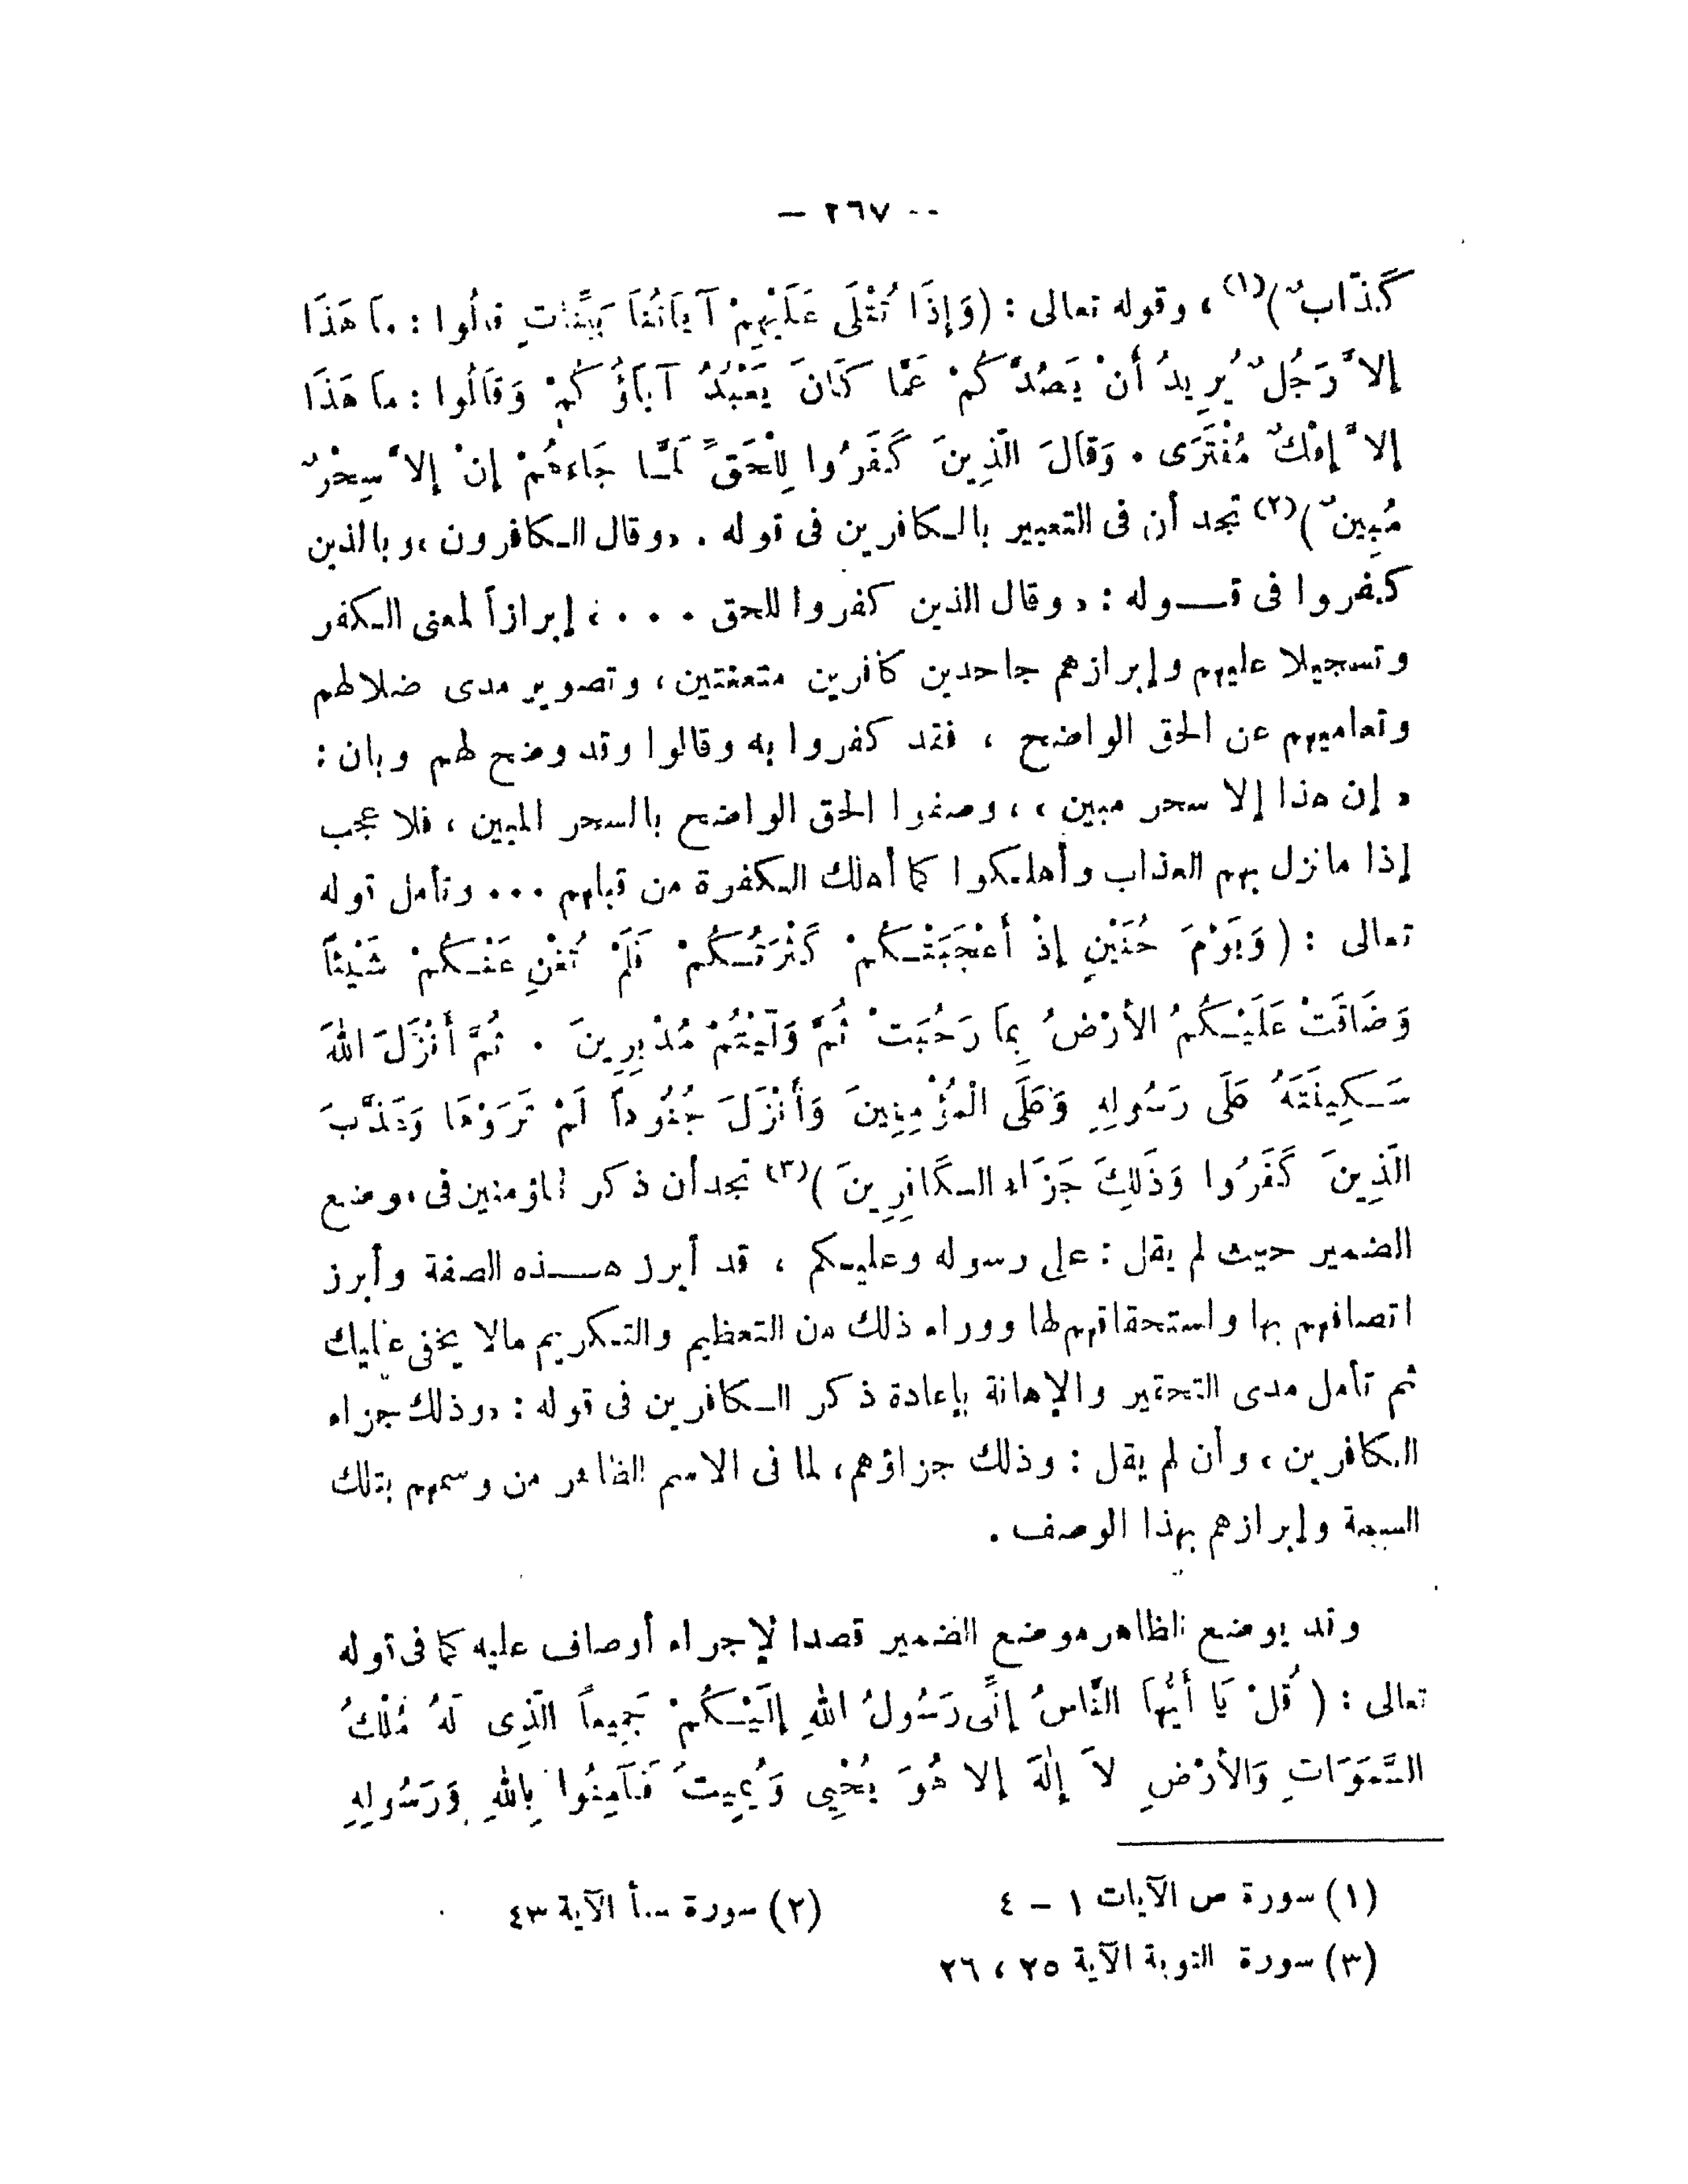 — ٢٦٧ —
كَذّابٌ)(١)، وقوله تعالى : (وَإِذَا تُتْلَى عَلَيْهِمْ آيَاتُنَا بَيِّنَاتٍ قالُوا : ما هَذَا
إلاَّ رَجُلٌ يُرِيدُ أَنْ يَصُدَّكُمْ عَمَّا كَانَ يَعْبُدُ آبَاؤُكُمْ وَقَالُوا : مَا هَذَا
إلاَّ إفْكٌ مُفْتَرَى . وَقالَ الّذِينَ كَفَرُوا لِلْحَقِّ لَمَّا جَاءهُمْ إنْ إلاَّ سِحْرٌ
مُبِينٌ)(٢) تجد أن فى التعبير بالكافرين فى قوله . «وقال الكافرون» وبالذين
كفروا فى قـــوله : « وقال الذين كفروا للحق . . . » إبرازاً لمعنى الكفر
وتسجيلا عليهم وإبرازهم جاحدين كافرين متعنتين ، وتصوير مدى ضلالهم
وتعاميهم عن الحق الواضح ، فقد كفروا به وقالوا وقد وضح لهم وبان :
« إن هذا إلا سحر مبين » ، وصفوا الحق الواضح بالسحر المبين ، فلا عجب
إذا ما نزل بهم العذاب وأهلكوا كما أهلك الكفرة من قبلهم ... وتأمل قوله
تعالى : ( وَيَوْمَ حُنَيْنٍ إذْ أَعْجَبَتْكُمْ كَثْرَتُكُمْ فَلَمْ تُغْنِ عَنْكُمْ شَيْئاً
وَضَاقَتْ عَلَيْكُمُ الأرْضُ بِمَا رَحُبَتْ ثُمَّ وَلَّيْتُمْ مُدْبِرِينَ . ثُمَّ أَنْزَلَ اللهُ
سَكِينَتَهُ عَلَى رَسُولِهِ وَعَلَى الْمُؤْمِنِينَ وَأَنْزَلَ جُنُوداً لَمْ تَرَوْهَا وَعَذَّبَ
الّذِينَ كَفَرُوا وَذَلِكَ جَزَاءُ الكَافِرِينَ )(٣) تجد أن ذكر المؤمنين فى موضع
الضمير حيث لم يقل : على رسوله وعليكم ، قد أبرز هـــذه الصفة وأبرز
اتصافهم بها واستحقاقهم لها ووراء ذلك من التعظيم والتكريم مالا يخفى عليك
ثم تأمل مدى التحقير والإهانة بإعادة ذكر الكافرين فى قوله : «وذلك جزاء
الكافرين » وأن لم يقل : وذلك جزاؤهم ، لما فى الاسم الظاهر من وسمهم بتلك
السمة وإبرازهم بهذا الوصف .
وقد يوضع الظاهر موضع الضمير قصدا لإجراء أوصاف عليه كما فى قوله
تعالى : ( قُلْ يَا أَيُّهَا النَّاسُ إنِّى رَسُولُ اللهِ إلَيْكُمْ جَمِيعاً الّذِى لَهُ مُلْكُ
السَّمَوَاتِ وَالأرْضِ لاَ إلَهَ إلا هُوَ يُحْيِى وَيُمِيتُ فَآمِنُوا بِاللهِ وَرَسُولِهِ
(١) سورة ص الآيات ١ – ٤
(٢) سورة سبأ الآية ٤٣
(٣) سورة التوبة الآية ٢٥ ، ٢٦